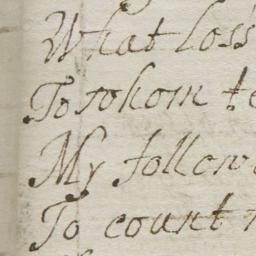 What loss
To whom t
My follow
To count